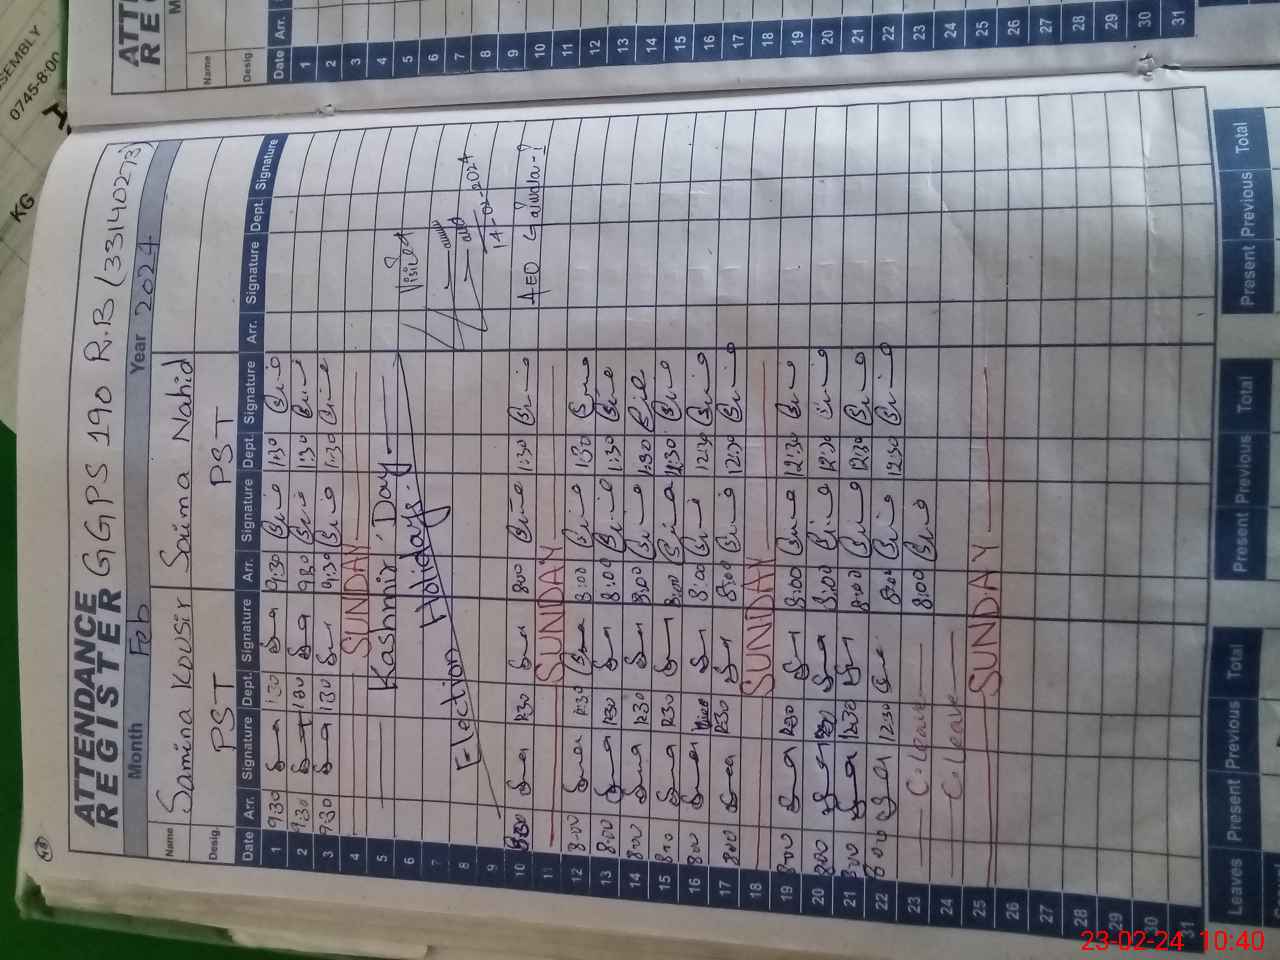 ATTENDANCE
REGISTER GGPS 190 R.B (33140273)
Month Feb Year 2024
Name Samina Kousir Saima Nahid
Desig. PST PST
Date Arr. Signature Dept. Signature Arr. Signature Dept. Signature Arr. Signature Dept. Signature
1 9:30 1:30 9:30 1:30
2 9:30 1:30 9:30 1:30
3 9:30 1:30 9:30 1:30
4 SUNDAY
5 Kashmir Day
6 Visited
7 Election Holidays
8 14-02-2024
9
10 8:00 1:30 8:00 1:30 AEO Gaiwala-I
11 SUNDAY
12 8:00 1:30 8:00 1:30
13 8:00 1:30 8:00 1:30
14 8:00 1:30 8:00 1:30
15 8:00 12:30 8:00 12:30
16 8:00 8:00 12:30
17 8:00 12:30 8:00 12:30
18 SUNDAY
19 8:00 12:30 8:00 12:30
20 8:00 12:30 8:00 12:30
21 8:00 12:30 8:00 12:30
22 8:00 12:30 8:00 12:30
23 C. leave 8:00
24 C. leave
25 SUNDAY
26
27
28
29
30
31
Leaves Present Previous Total Present Previous Total Present Previous Total
ATTE
REG
M
Name
Desig
Date Arr.
1
2
3
4
5
6
7
8
9
10
11
12
13
14
15
16
17
18
19
20
21
22
23
24
25
26
27
28
29
30
31
SEMBLY
0745-8:00
KG
23-02-24 10:40